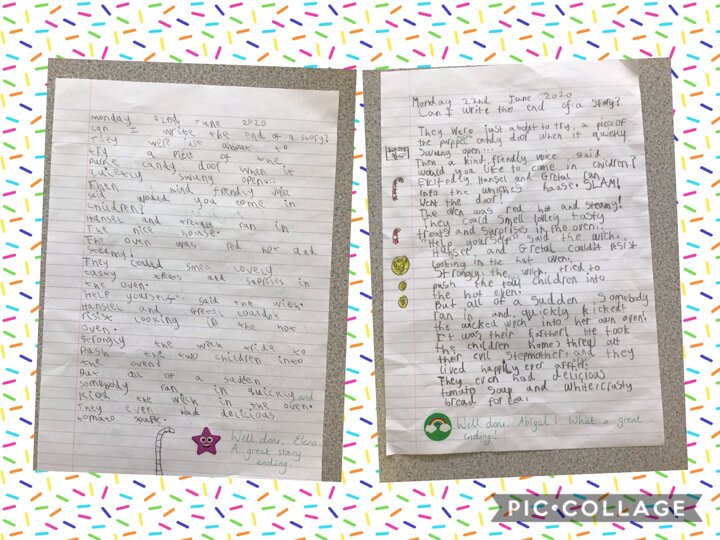 monday 22nd June 2020
can I write the end of a story?
They were just about to
try a piece of the
purple candy door when it
quietly swang open.
Then a kind friendly voice
said would you come in
children?
Hansel and Gretal ran in
The nice house.
The oven was red hot and
steamy!
They could smell lovely
tasty treats and suprises in
the oven.
Help yourself said the witch.
Hansel and Gretll couldnt
resist looking in the hot
oven.
Strongly the witch tride to
Push the two children into
the oven!
But all of a sudden
somebody ran in quickly and
kicd the wich in the oven.
They even had delicious
tomato soupe.
Well done, Elena.
A great story
ending.
Monday 22nd June 2020
Can I write the end of a story?
They Were just about to try, a piece of
the purpple candy door when it quickly
Swang open...
Then a kind, friendly voice said
would you like to come in children?
Excitedly, Hansel and Gretal ran
into the wniches house. SLAM!
Went the door!
The oven was red hot and steamy!
They Could smell lolley tasty
treats and surprises in the oven.
"Help yourselfs" said the wich.
Hansel and Gretal Couldst resist
Looking in the hot oven.
Strongly, the wich, tried to
push the two children into
the hot oven!
But all of a Sudden Somebody
ran in and quickly kicked
the wicked wich into her own oven!
It was their father! He took
the children home, threy all
their evil Stepmother, and they
lived happily ever after.
They even had delicious
tomato soup and white, crusty
bread for tea!
Well done, Abigal! What a great
ending!
PIC•COLLAGE